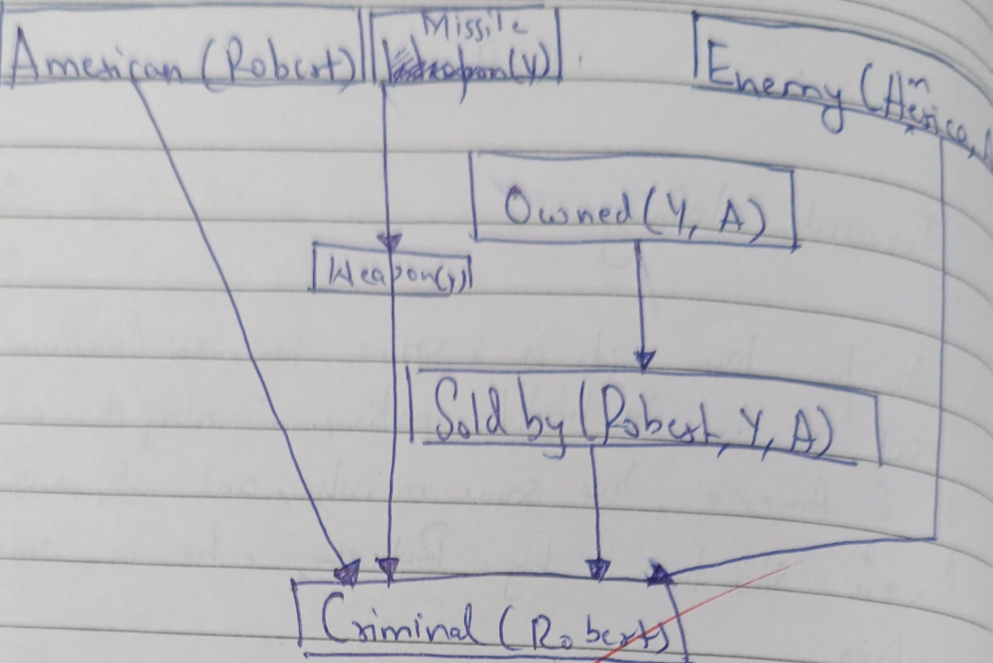 Missile
American (Robert)
Weapon(Y)
Enemy (America,
Owned (Y, A)
Weapon(y)
Sold by (Robert, Y, A)
Criminal (Robert)